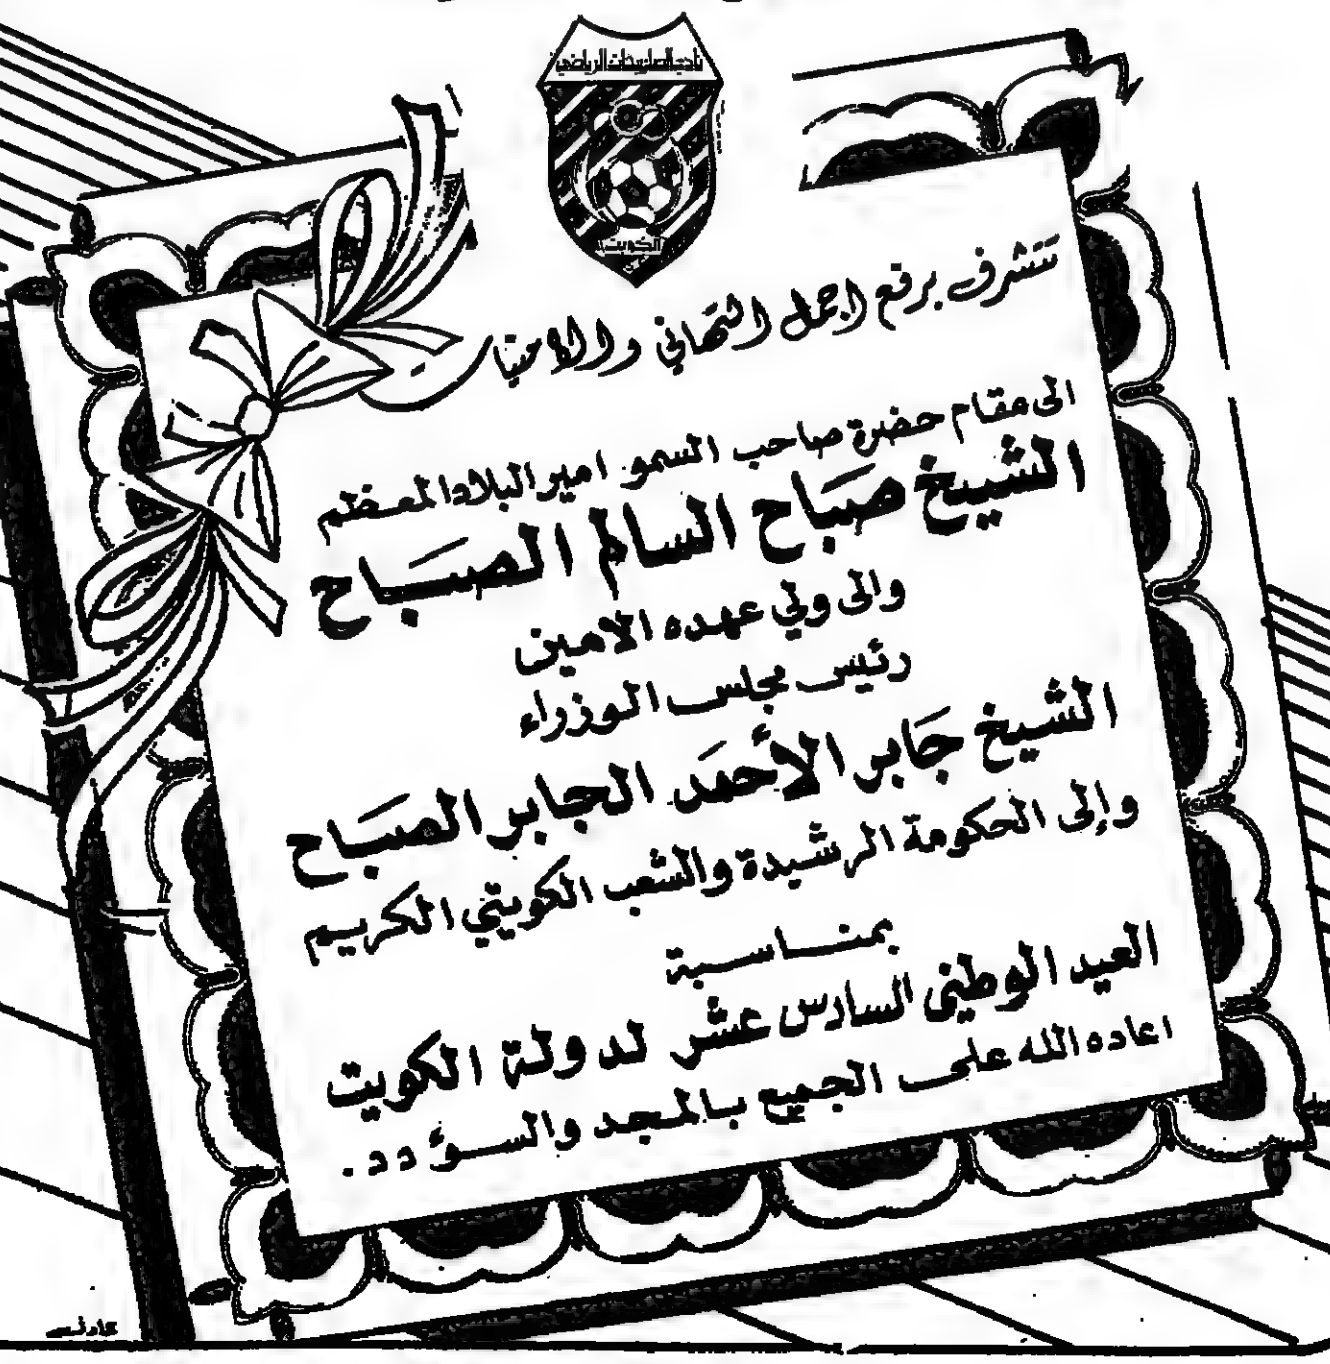 نادي الصليبخات الرياضي
الكويت
تتشرف برفع اجمل التهاني والامنيات
الى مقام حضرة صاحب السمو امير البلاد المعظم
الشيخ صباح السالم الصباح
والى ولي عهده الامين
رئيس مجلس الوزراء
الشيخ جَابر الأحمَد الجابر الصبَاح
وإلى الحكومة الرشيدة والشعب الكويتي الكريم
بمناسبة
العيد الوطني السادس عشر لدولة الكويت
اعاده الله على الجميع بالمجد والسؤدد.